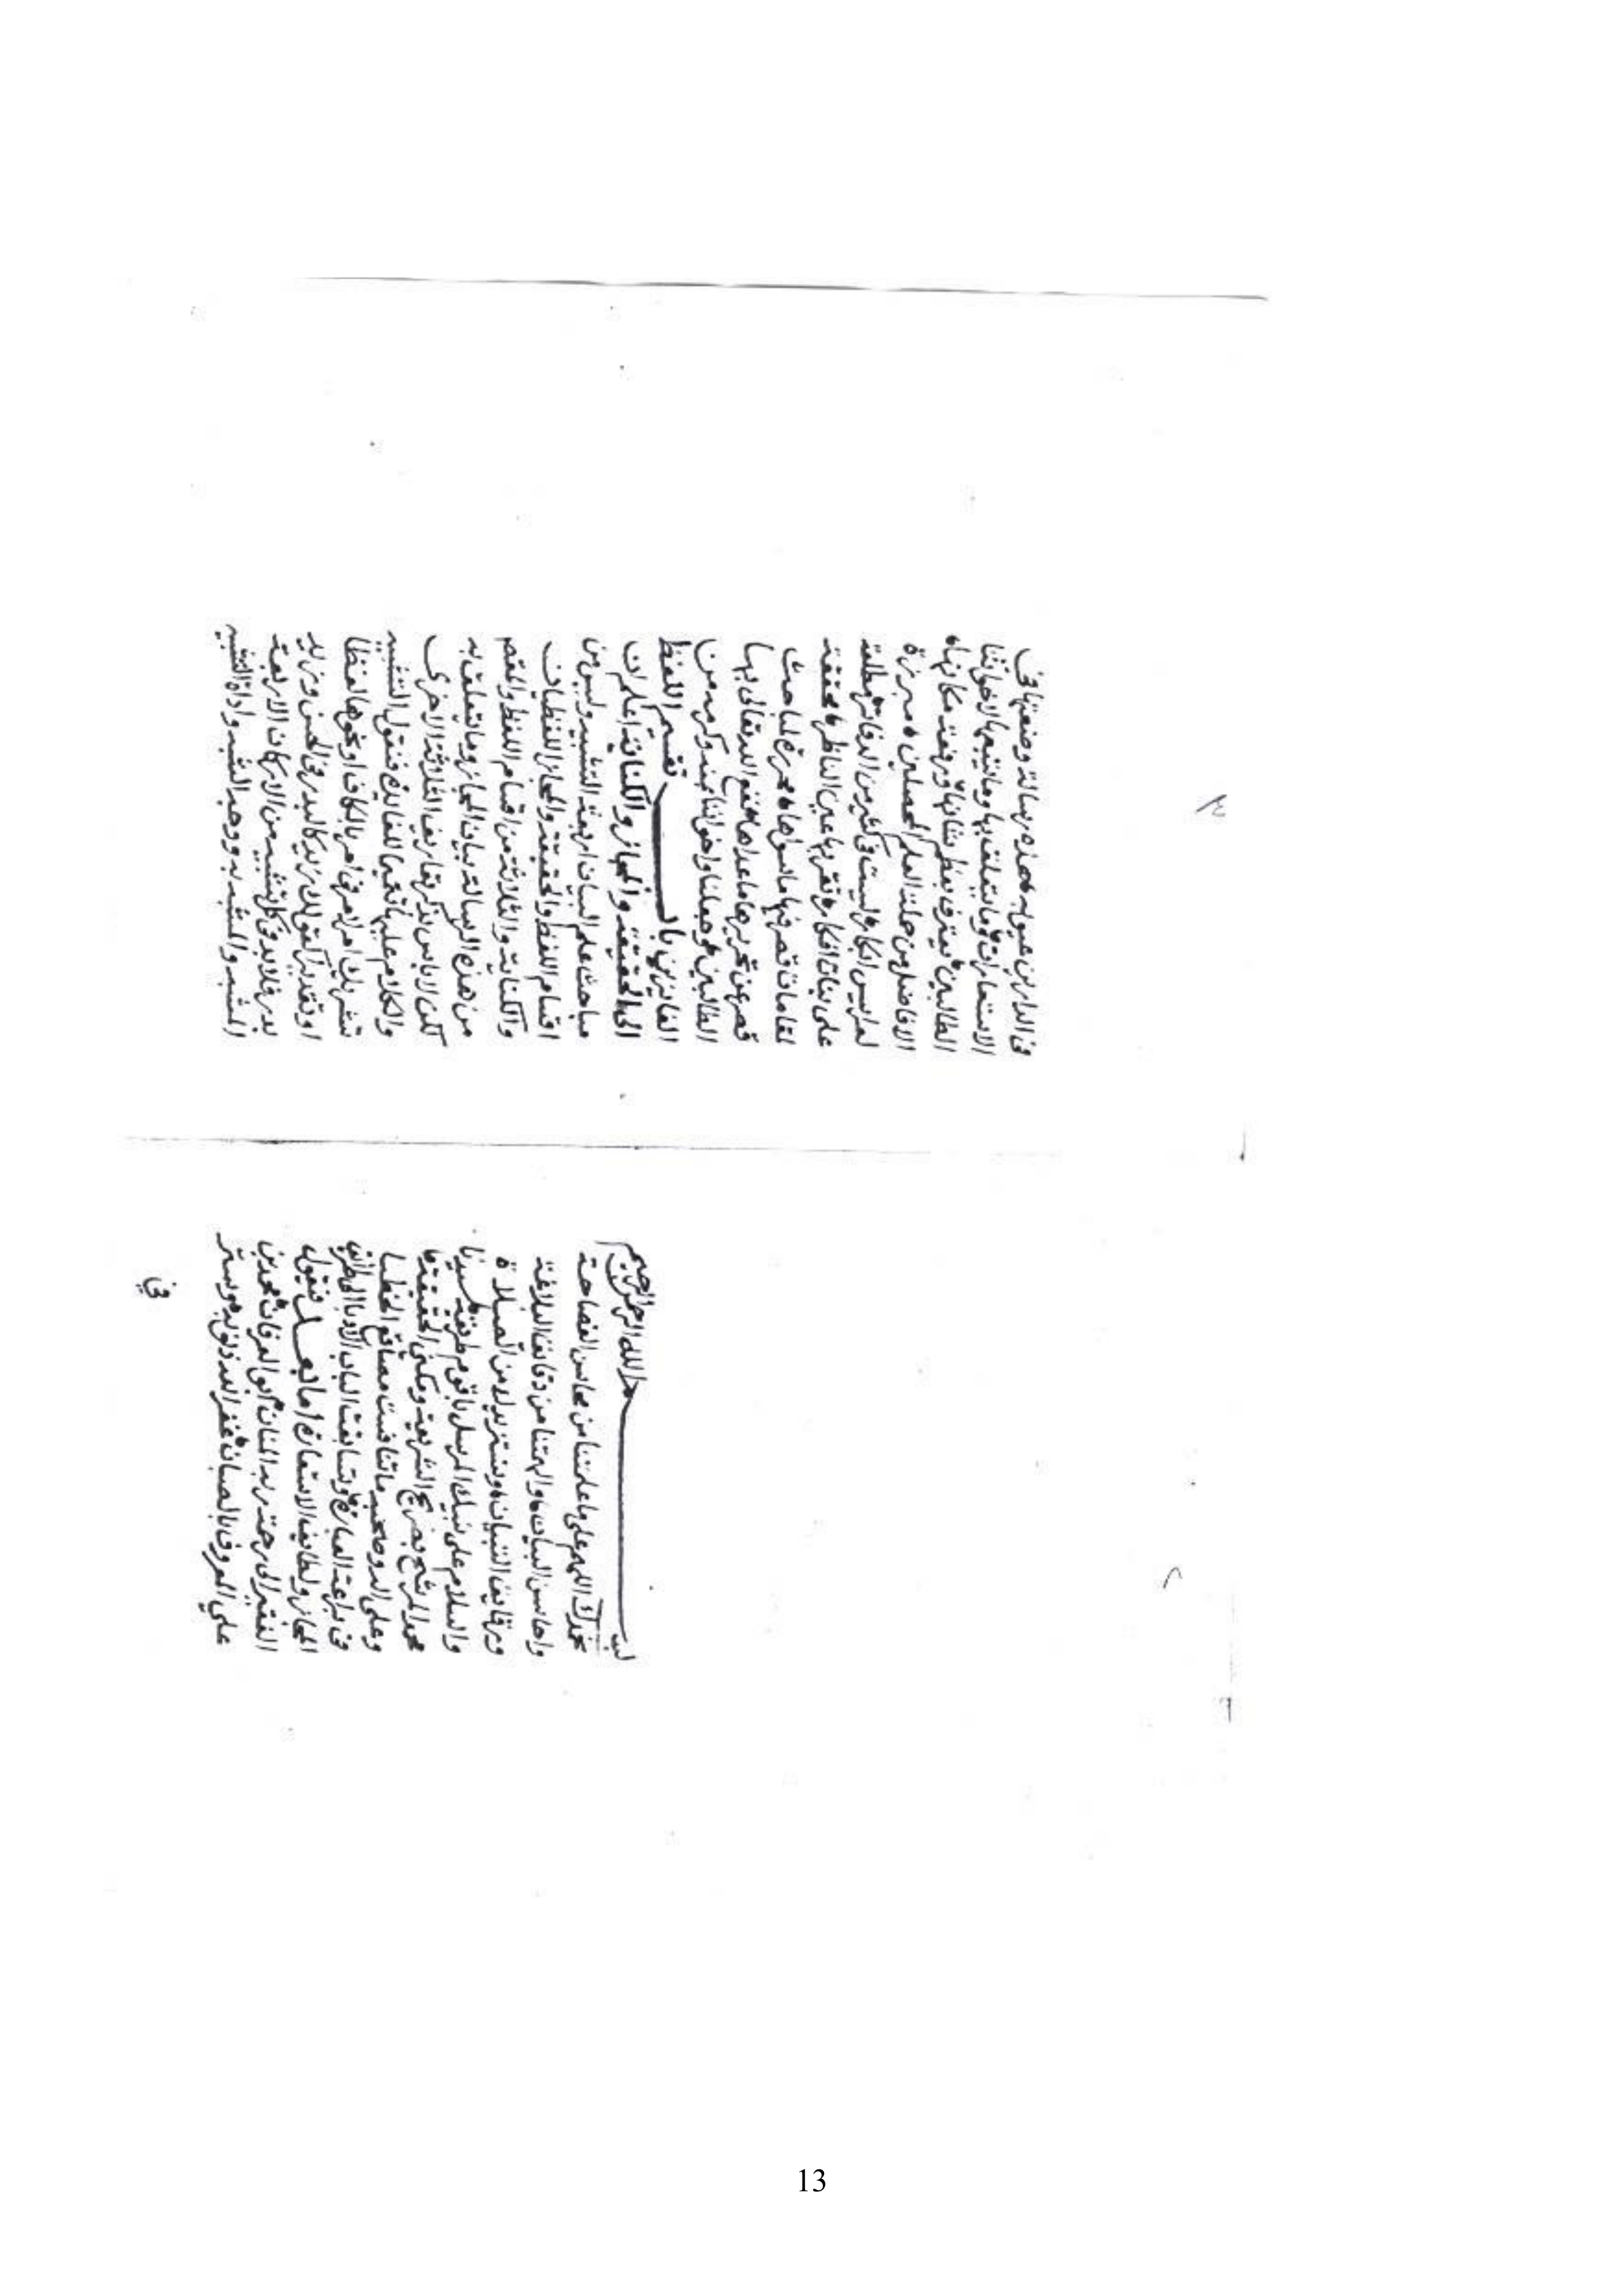 ٢
بسم الله الرحمن الرحيم
نحمدك اللهم على ما علمتنا من محاسن الفصاحة
واحاسن البيان والهمتنا من دقائق البلاغة
ورقايق التبيان ونستزيدك من الصلاة
والسلام على نبيك المرسل باقوم طريقة سيدنا
محمد المرشح بصريح الشريعة ومكنى الحقيقة
وعلى اله وصحبه ما تنافست مصاقع الخطبا
في براعة العبارة وتسابقت الباب الادبا
المجاز ولطايف الاستعارة اما بعد فيقول
الفقير الى رحمة ربه المنان ابو العرفان محمد بن
علي المعروف بالصبان غفر الله ذنوبه وستر
في
٣
في الدارين عيوبه هذه رسالة وضعتها في
الاستعارات وما يتعلق بها وما يتممها لاخواننا
الطالبين يعترف بعظم شانها ورفعة مكانها
الافاضل من حملة العلم المحصلين مبرزة
لعرايس ابكار ليست في كثير من الدفاتر مطلعة
على بنات افكار تقر بها عين الناظر محققة
لمقامات قصر فيها ما سواها محررة لمباحث
قصر عن تحريرها ما عداها نفع الله تعالى بها
الطالبين وجعلنا واخواننا بمنه وكرمه من
الفايزين باب تقسيم اللفظ
الى الحقيقة والمجاز والكناية اعلم ان
مباحث علم البيان اربعة التشبيه وليس من
اقسام اللفظ والحقيقة والمجاز اللفظيان
والكناية والثلاثة من اقسام اللفظ والمقصود
من هذه الرسالة بيان المجاز وما يتعلق به
لكن لا باس بذكر تعاريف الثلاثة الاخرى
والكلام عليها تتميما للفايدة فنقول التشبيه
تشريك امر لامر في امر بالكاف او نحوها لفظا
او تقديرا كقولك زيد كالبدر في الحسن وزيد
بدر فلا بد في كل تشبيه من الاركان الاربعة
المشبه والمشبه به ووجه الشبه واداة التشبيه
13